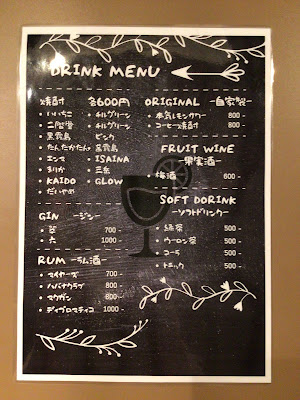 DRINK MENU
焼酎 各600円
・いいちこ
・二階堂
・黒霧島
・たんたかたん
・エンマ
・KAIDO
・だいやめ
・チルグリーン
・チルグリーン
ピンク
・茜霧島
・ISAINA
・三岳
・GLOW
GIN -ジン-
・翠 700 -
・六 1000 -
RUM -ラム酒-
・マイヤーズ 700 -
・ハバナクラブ 800 -
・マクガン 800 -
・ディプロマティコ 1000 -
ORIGINAL -自家製-
・本気レモンサワー 800 -
・コーヒー焼酎 800 -
FRUIT WINE
-果実酒-
・梅酒 600 -
SOFT DORINK
-ソフトドリンク-
・緑茶 500 -
・ウーロン茶 500 -
・コーラ 500 -
・トニック 500 -